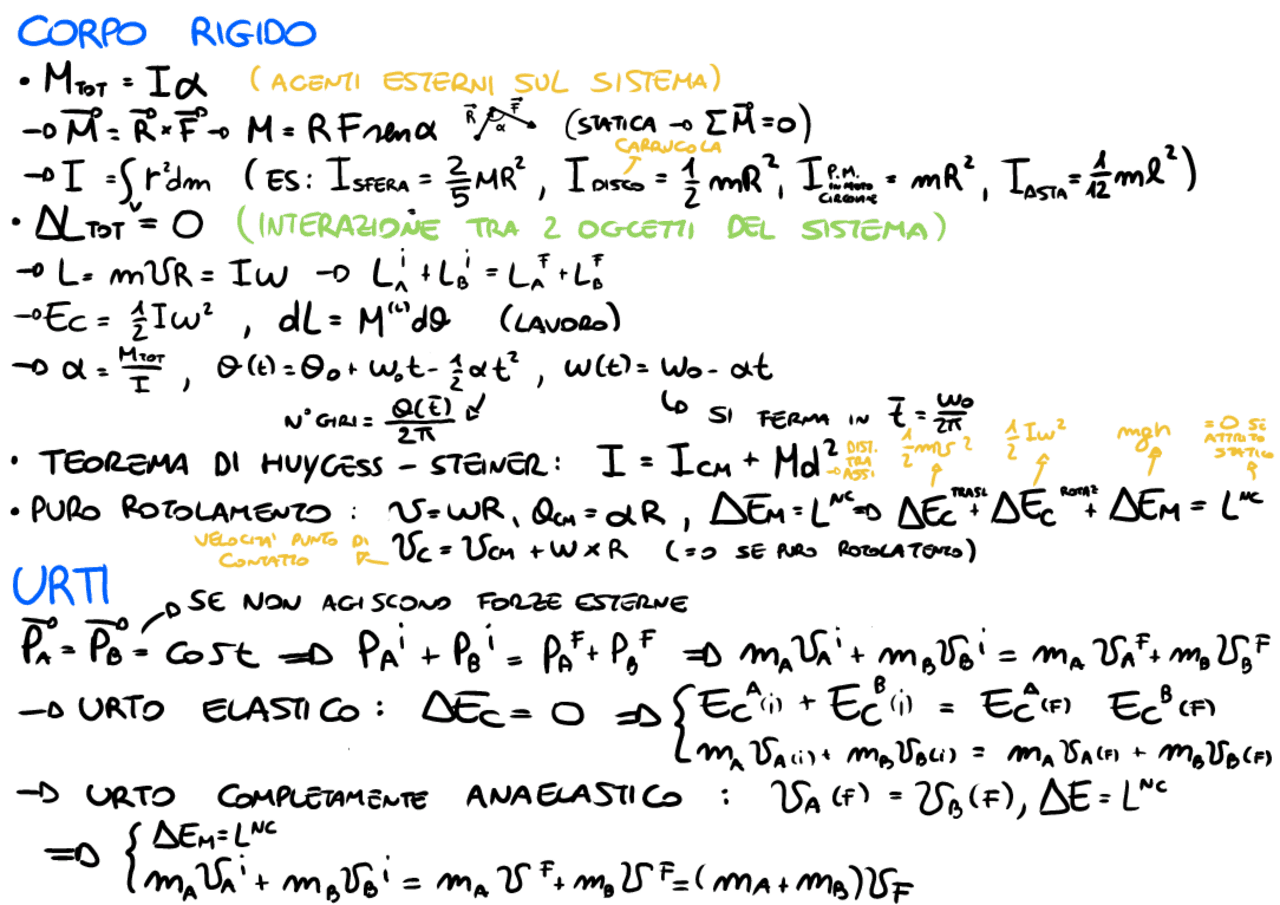 CORPO RIGIDO
• M_TOT = Iα (AGENTI ESTERNI SUL SISTEMA)
→ M⃗ = R⃗ × F⃗ → M = R F sen α R⃗ F⃗ α (STATICA → ΣM⃗ = 0)
CARRUCOLA
→ I = ∫_V r²dm (ES: I_SFERA = 2/5 MR², I_DISCO = 1/2 mR², I_P.M. IN MOTO CIRCOLARE = mR², I_ASTA = 1/12 mℓ²)
• ΔL_TOT = 0 (INTERAZIONE TRA 2 OGGETTI DEL SISTEMA)
→ L = mvR = Iω → L_A^i + L_B^i = L_A^F + L_B^F
→ Ec = 1/2 Iω², dL = M^(L) dθ (LAVORO)
→ α = M_TOT/I, θ(t) = θ₀ + ω₀t - 1/2 αt², ω(t) = ω₀ - αt
N° GIRI = θ(t̄)/2π SI FERMA IN t̄ = ω₀/2π
1/2 mv² 1/2 Iω² mgh = 0 SE ATTRITO STATICO
• TEOREMA DI HUYGESS - STEINER: I = I_CM + Md² → DIST. TRA ASSI
• PURO ROTOLAMENTO: v = ωR, a_CM = αR, ΔE_M = L^NC ⇒ ΔEc^TRASL + ΔEc^ROTAZ + ΔE_M = L^NC
VELOCITA' PUNTO DI CONTATTO ← v_C = v_CM + ω × R (= 0 SE PURO ROTOLATENTO)
URTI
→ SE NON AGISCONO FORZE ESTERNE
P⃗_A = P⃗_B = cost ⇒ P_A^i + P_B^i = P_A^F + P_B^F ⇒ m_A v_A^i + m_B v_B^i = m_A v_A^F + m_B v_B^F
→ URTO ELASTICO: ΔEc = 0 ⇒ { Ec^A(i) + Ec^B(i) = Ec^A(F) Ec^B(F)
m_A v_A(i) + m_B v_B(i) = m_A v_A(F) + m_B v_B(F)
→ URTO COMPLETAMENTE ANAELASTICO: v_A(F) = v_B(F), ΔE = L^NC
⇒ { ΔE_M = L^NC
m_A v_A^i + m_B v_B^i = m_A v^F + m_B v^F = (m_A + m_B) v_F